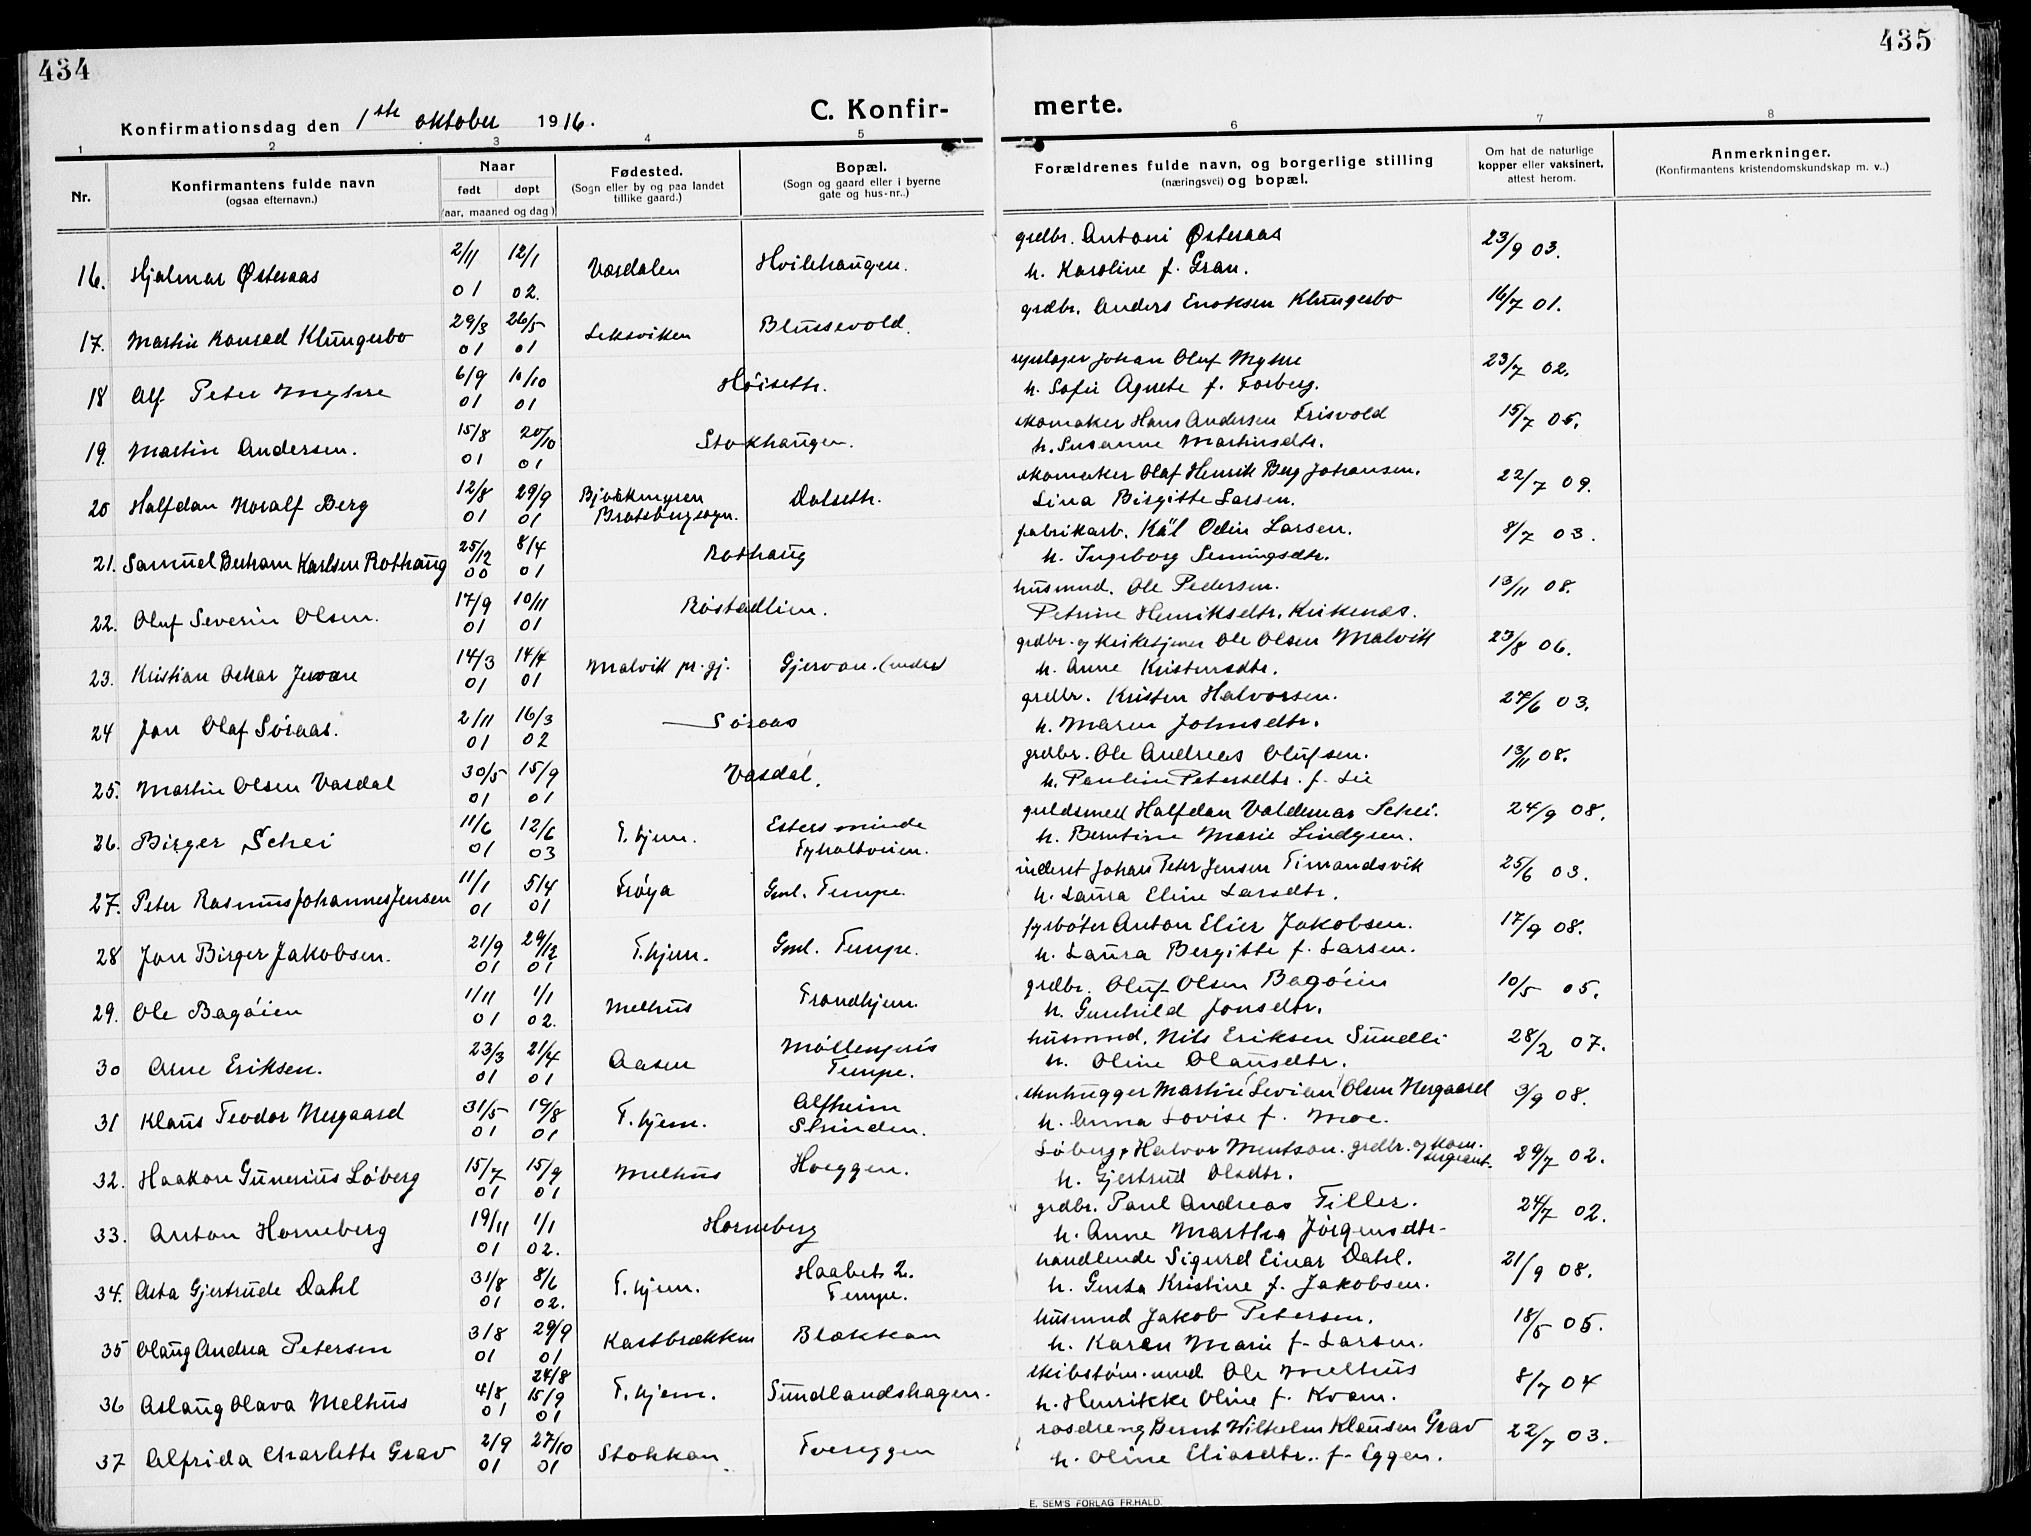 434
435
Konfirmationsdag den 1ste oktober 1916.
C. Konfirmerte.
1 2 3 4 5 6 7 8
Nr.
Konfirmantens fulde navn
(ogsaa efternavn.)
Naar
født døpt
(aar, maaned og dag)
Fødested.
(Sogn eller by og paa landet
tillike gaard.)
Bopæl.
(Sogn og gaard eller i byerne
gate og hus-nr..)
Forældrenes fulde navn, og borgerlige stilling
(næringsvei) og bopæl.
Om hat de naturlige
kopper eller vaksinert,
attest herom.
Anmerkninger.
(Konfirmantens kristendomskundskap m. v..)
16. Hjalmar Østeraas 2/11 01 12/1 02. Vasdalen Hvilehaugen. grdbr. Antoni Østeraas 23/9 03.
h. Karoline f. Gran.
17. Martin Konrad Klungerbo 29/3 01 26/5 01 Leksviken Blussevold. grdbr. Anders Enoksen Klungerbo 16/7 01.
18 Alf Peter Myhre 6/9 01 10/10 01 Høiseth. repslager Johan Oluf Myhre 23/7 02.
h. Sofie Agnete f. Forberg.
19. Martin Andersen. 15/8 01 20/10 01 Stokhaugen. skomaker Hans Andersen Frisvold 15/7 05.
h. Susanne Martinsdtr.
20 Halfdan Noralf Berg 12/8 01 29/9 01 Bjørkmyren Dalseth. skomaker Olaf Henrik Berg Johansen. 22/7 09.
Bratsbergsogn. Lina Birgitte Larsen.
21. Samuel Bertram Karlsen Rothaug 25/12 00 8/4 01 Rothaug fabrikarb. Kal Odin Larsen. 8/7 03.
h. Ingeborg Semingsdtr.
22. Oluf Severin Olsen. 17/9 01 10/11 01 Røstadlien. husmnd. Ole Pedersen. 13/11 08.
Petrine Henriksdtr. Kirkenæs.
23. Kristian Oskar Jervan 14/3 01 14/4 01 Malvik pr.gj. Gjervan. (nedre) grdbr. og kirketjener Ole Olsen Malvik 23/8 06.
h. Anne Kristensdtr.
24 Jon Olaf Søraas. 2/11 01 16/3 02 Søraas grdbr. Kristen Halvorsen. 27/6 03.
h. Maren Johnsdtr.
25. Martin Olsen Vasdal 30/5 01 15/9 01 Vasdal. grdbr. Ole Andreas Olufsen. 13/11 08.
h. Pauline Petersdtr. f. Lie
26. Birger Schei 11/6 01 12/6 03 T.hjem. Esters minde guldsmed Halfdan Valdemar Schei. 24/9 08.
Tyholtveien. h. Berntine Marie Lindgren.
27. Peter Rasmus Johannes Jensen 11/1 01 5/4 01 Frøya Gml. Tempe. inderst Johan Peter Jensen Timandsvik 25/6 03.
h. Laura Eline Larsdtr.
28 Jon Birger Jakobsen. 21/9 01 29/12 01 T.hjem. Gml. Tempe. fyrbøter Anton Elier Jakobsen. 17/9 08.
h. Laura Bergitte f. Larsen.
29. Ole Bagøien 1/11 01 1/1 02. Melhus Trondhjem. grdbr. Oluf Olsen Bagøien 10/5 05.
h. Gunhild Jonsdtr.
30 Arne Eriksen. 23/3 01 21/4 01 Aasen Møllenpris husmnd. Nils Eriksen Sundli 28/2 07.
Tempe. h. Oline Olausdtr.
31 Klaus Teodor Nergaard 31/5 01 19/8 01 T.hjem. Alfheim stenhugger Martin Sevian Olsen Nergaard 3/9 08.
Strinden. h. Anna Lovise f. Moe.
32. Haakon Gunerius Løberg 15/7 01 15/9 01 Melhus Hoeggen. Løberg, Halvor Mentson. grdbr. og kom. sergeant. 29/7 02.
h. Gjertrud Olsdtr.
33. Anton Horneberg 19/11 01 1/1 02. Horneberg grdbr. Paul Andreas Tiller. 24/7 02.
h. Anne Martha Jörgensdtr.
34. Asta Gjertrude Dahl 31/8 01 8/6 02. T.hjem. Haabet 2. handlende Sigurd Einar Dahl. 21/9 08.
Tempe. h. Gusta Kristine f. Jakobsen.
35 Olaug Andrea Petersen 31/8 01 29/9 01 Kastbrækken Blakkan husmnd Jakob Petersen. 18/5 05.
h. Karen Marie f. Larsen.
36 Aslaug Olava Melhus 4/8 01 24/8 15/9 01 T.hjem. Sundlandshagen. skibstøm.mnd. Ole Melhus 8/7 04
h. Henrikke Oline f. Kvam.
37 Alfrida Charlotte Grav 2/9 01 27/10 01 Stokkan Tvereggen rosdreng Bernt Wilhelm Klausen Grav 22/7 03.
h. Oline Eliasdtr. f. Eggen.
E. SEM'S FORLAG FR.HALD.